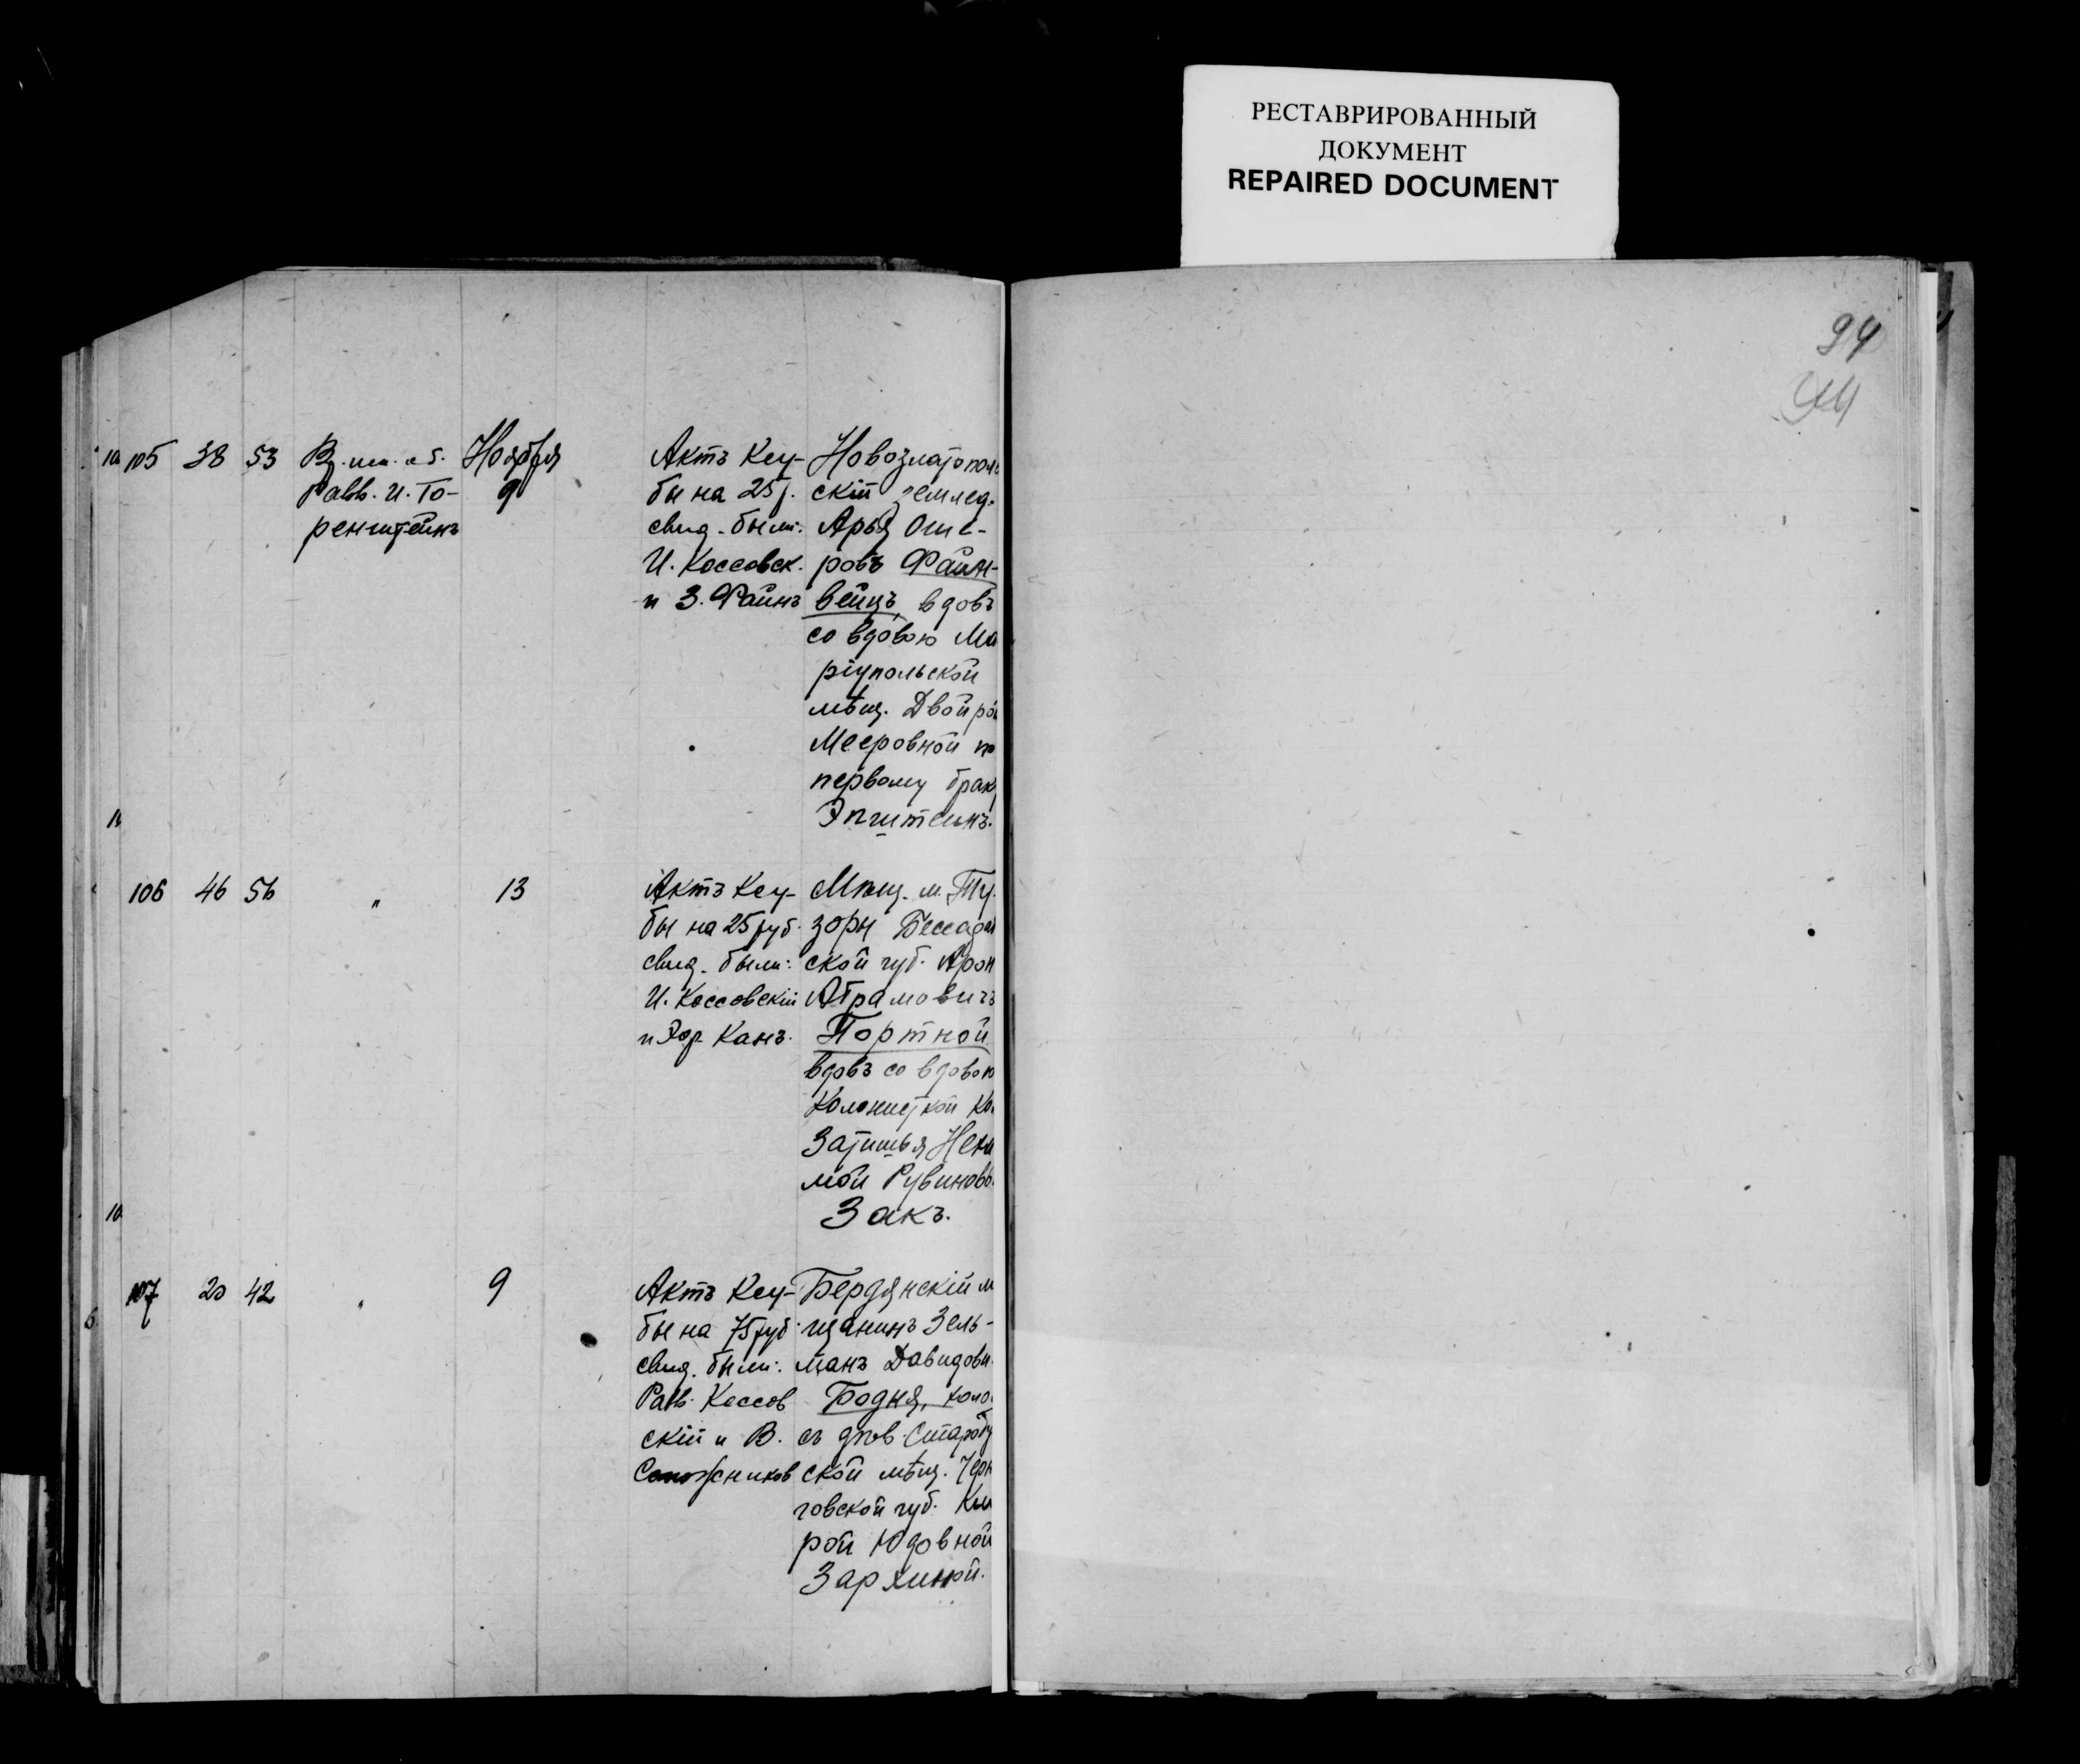 РЕСТАВРИРОВАННЫЙ
ДОКУМЕНТ
REPAIRED DOCUMENT
94
105 38 53
Равв. И. То-
ренштейнъ
Ноября
9
Актъ Кеу-
бы на 25 р.
свид. были:
И. Коссовск.
и З. Файнъ
Новозлатополь
скій землед.
Арья Оше-
ровъ Файн-
вейцъ, вдовъ
со вдовою Ма
ріупольской
мѣщ. Двойрой
Мееровной по
первому браку
Эпштейнъ.
106 46 56 " 13
Актъ Кеу-
бы на 25 руб.
свид. были:
И. Коссовскій
и Канъ.
Мѣщ. м. Ту
зоры Бессараб
ской губ. Арон
Абрамовичъ
Портной
вдовъ со вдовою
колонисткой ко
Затишья Неха
мой Рувиновн
Закъ.
107 20 42 " 9
Актъ Кеу-
бы на 75 руб.
свид. были:
Равв. Коссов
скій и В.
Сапожников
Бердянскій м
щанинъ Зель-
манъ Давидови
Бодня, холо
съ дѣв. Староду
ской мѣщ. Черн
говской губ.
рой Юдовной
Зархиной.